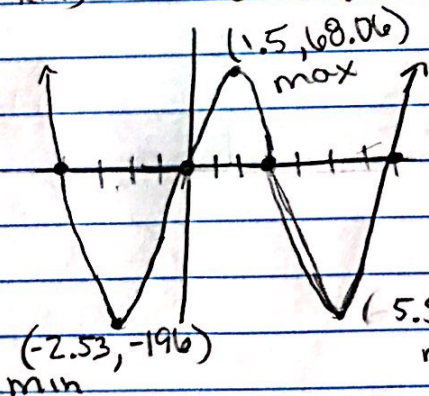 (1.5, 68.06)
max
(5.5
(-2.53, -196)
min